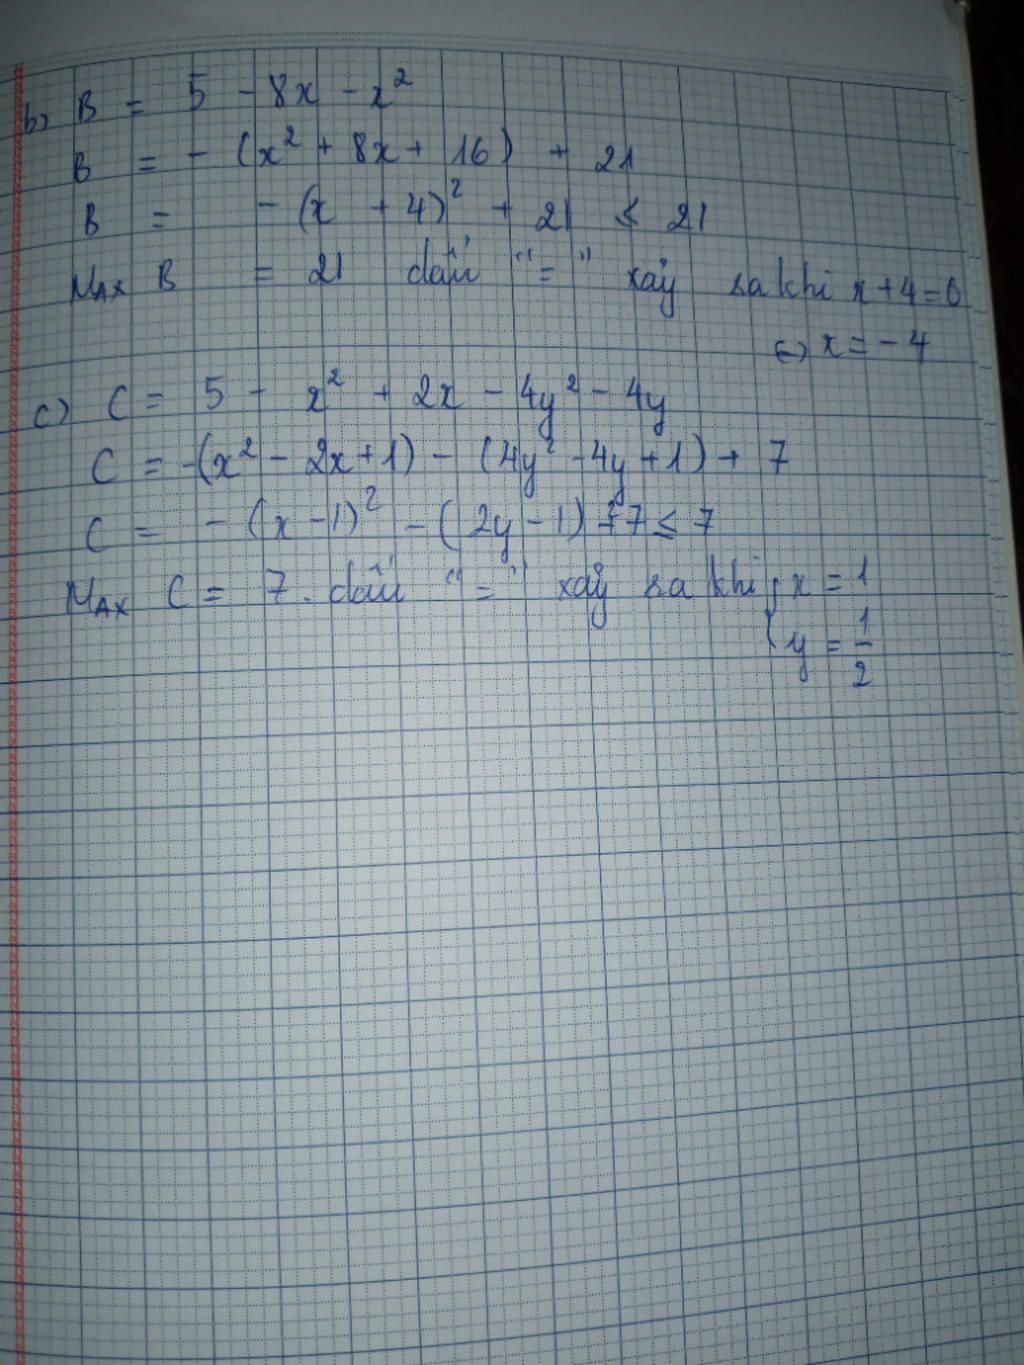 b) B = 5 - 8x - x²
B = - (x² + 8x + 16) + 21
B = - (x + 4)² + 21 ≤ 21
MAX B = 21 dấu "=" xảy ra khi x + 4 = 0
⇔ x = - 4
c) C = 5 - x² + 2x - 4y² - 4y
C = -(x² - 2x + 1) - (4y² - 4y + 1) + 7
C = - (x - 1)² - (2y - 1) + 7 ≤ 7
MAX C = 7. dấu "=" xảy ra khi { x = 1
y = 1/2